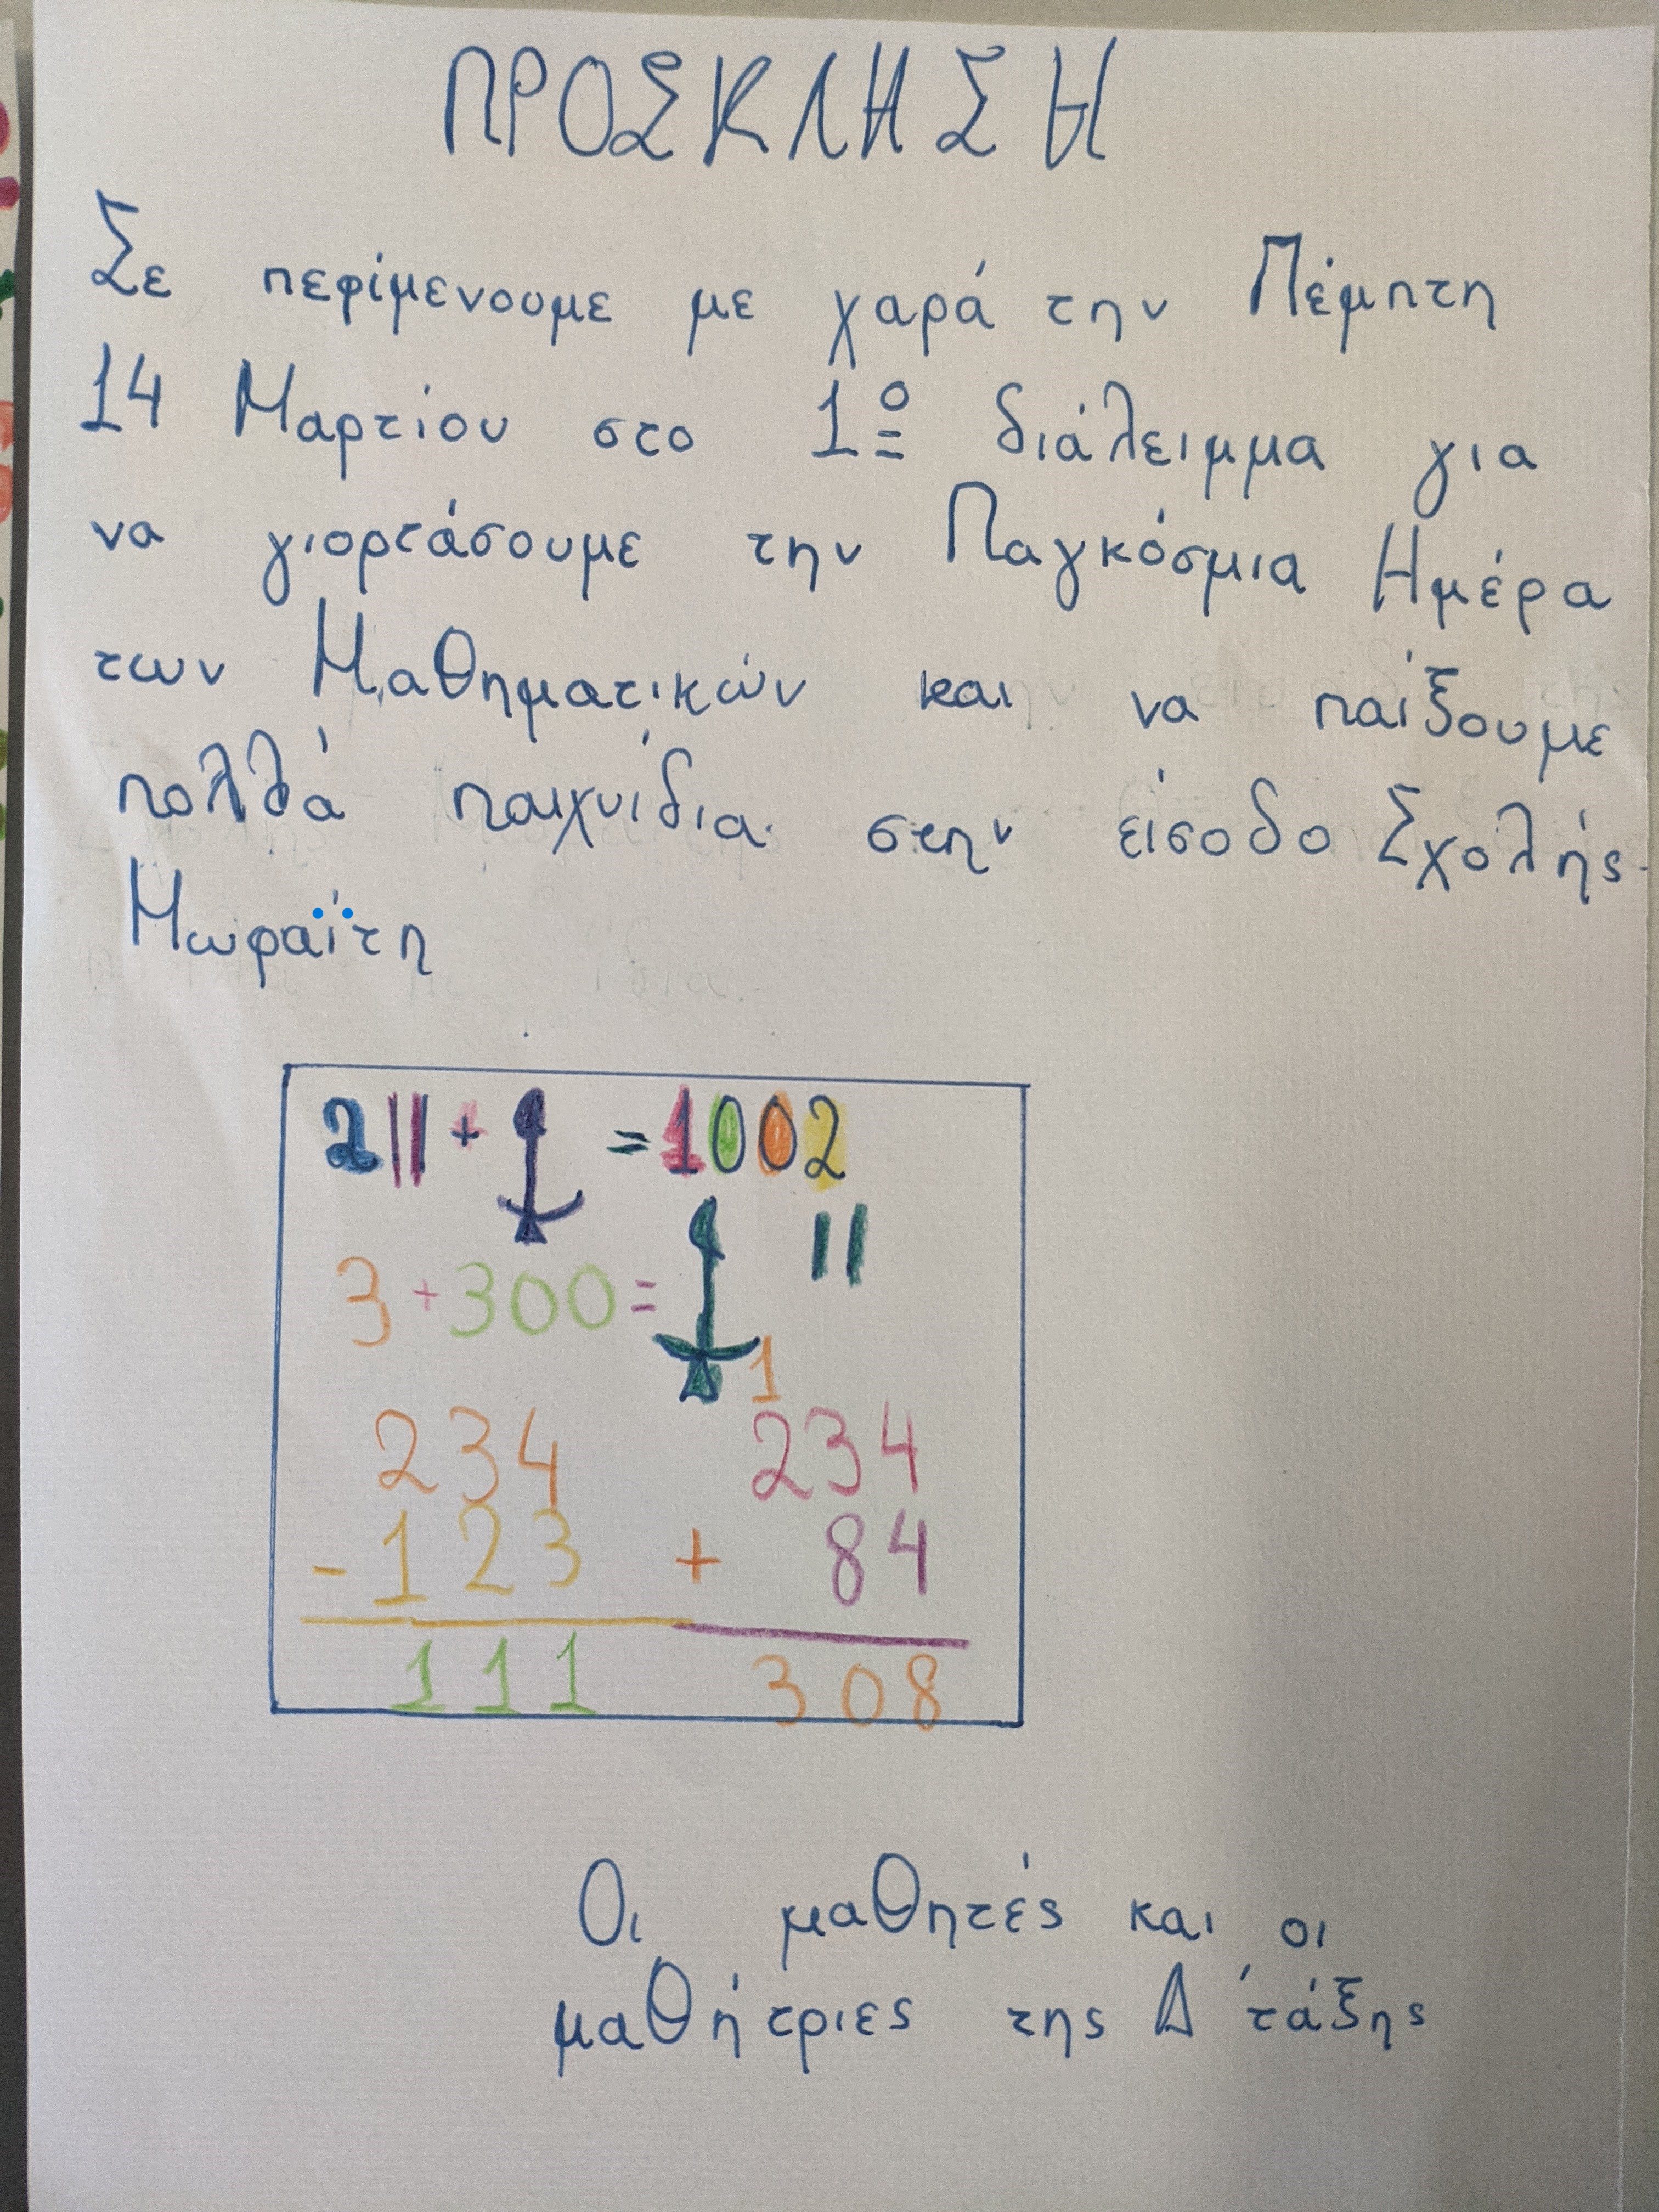 ΠΡΟΣΚΛΗΣΗ
Σε περίμενουμε με χαρά την Πέμπτη
14 Μαρτίου στο 1º διάλειμμα για
να γιορτάσουμε την Παγκόσμια Ημέρα
των Μαθηματικών και να παίξουμε
πολλά παιχνίδια στην είσοδο Σχολής
Μωραΐτη
2|| + = 1002
3 + 300 = ||
1
234 234
-123 + 84
111 308
Οι μαθητές και οι
μαθήτριες της Δ΄ τάξης